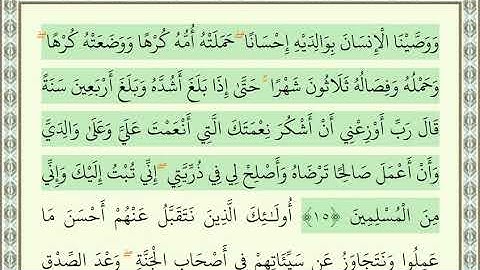 وَوَصَّيْنَا الْإِنْسَانَ بِوَالِدَيْهِ إِحْسَانًا ۖ حَمَلَتْهُ أُمُّهُ كُرْهًا وَوَضَعَتْهُ كُرْهًا ۖ
وَحَمْلُهُ وَفِصَالُهُ ثَلَاثُونَ شَهْرًا ۚ حَتَّىٰ إِذَا بَلَغَ أَشُدَّهُ وَبَلَغَ أَرْبَعِينَ سَنَةً
قَالَ رَبِّ أَوْزِعْنِي أَنْ أَشْكُرَ نِعْمَتَكَ الَّتِي أَنْعَمْتَ عَلَيَّ وَعَلَىٰ وَالِدَيَّ
وَأَنْ أَعْمَلَ صَالِحًا تَرْضَاهُ وَأَصْلِحْ لِي فِي ذُرِّيَّتِي ۖ إِنِّي تُبْتُ إِلَيْكَ وَإِنِّي
مِنَ الْمُسْلِمِينَ ﴿١٥﴾ أُولَـٰئِكَ الَّذِينَ نَتَقَبَّلُ عَنْهُمْ أَحْسَنَ مَا
عَمِلُوا وَنَتَجَاوَزُ عَن سَيِّئَاتِهِمْ فِي أَصْحَابِ الْجَنَّةِ ۖ وَعْدَ الصِّدْقِ